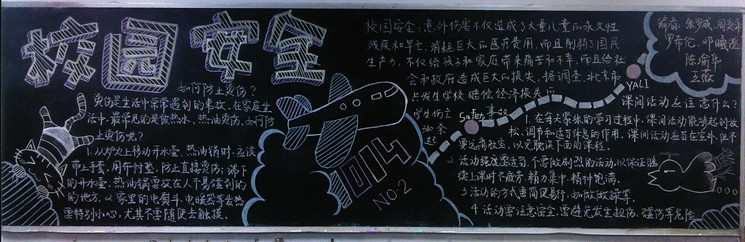 校园安全
如何防止烫伤？
烫伤是生活中常常遇到的事故,在家庭生
活中,最常见的是被热水、热油烫伤,如何防
止烫伤呢？
1.从炉火上移动开水壶、热油锅时,应该
带上手套,用布衬垫,防止直接烫伤;端下
的开水壶、热油锅要放在人不易碰到的
的地方。2.家里的电熨斗、电暖器等发热
要特别小心,尤其不要随便去触摸。
1014
NO.2
校园安全,意外伤害不仅造成了大量儿童的永久性
残疾和早亡,消耗巨大的医疗费用,而且削弱了国民
生产力,不仅给孩子和家庭带来痛苦和不幸,而且给社
会和政府造成巨大的损失,据调查,北京市
发生学校赔偿经济损失
学生伤亡
事故
余起
Safety
YALI
陈俞华
课间活动应注意什么？
1.在每天紧张的学习过程中,课间活动能够起到放
松、调节和适当休息的作用。课间活动应当在室外,但不
要远离教室,以免耽误下面的课程。
2.活动强度要适当,不要做剧烈的活动,以保证继
续上课时不疲劳、精力集中、精神饱满。
3.活动的方式要简便易行,如做做操等。
4.活动要注意安全,要避免发生扭伤、碰伤等危险。